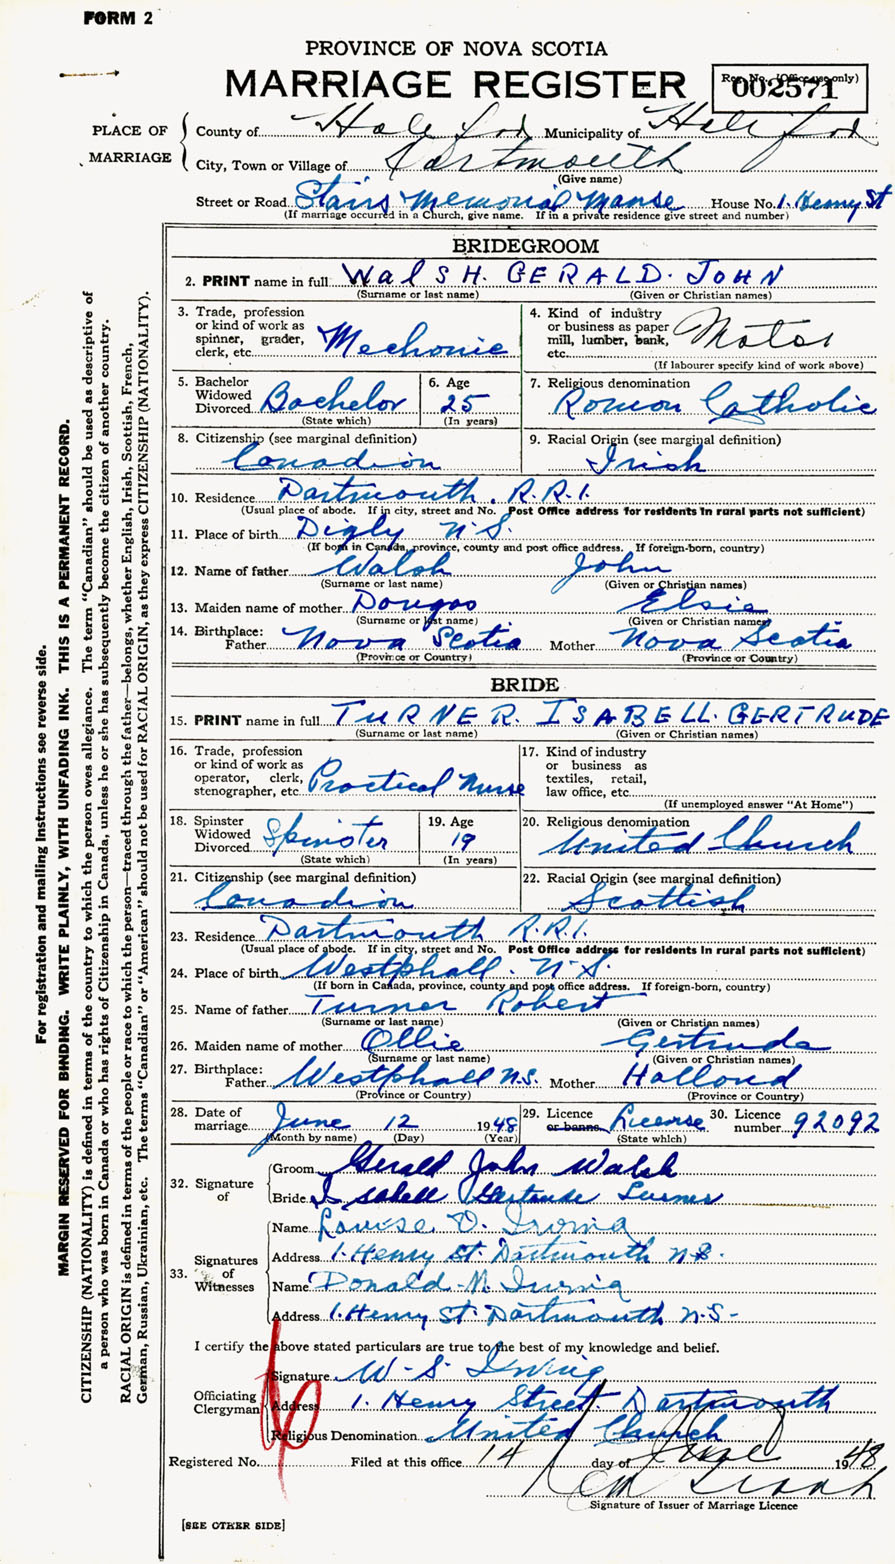 FORM 2
PROVINCE OF NOVA SCOTIA
MARRIAGE REGISTER
Reg. No. (Office use only)
002571
PLACE OF MARRIAGE
County of Halifax Municipality of Halifax
City, Town or Village of Dartmouth
(Give name)
Street or Road Stairs Memorial Manse House No. 1. Henry St
(If marriage occurred in a Church, give name. If in a private residence give street and number)
BRIDEGROOM
2. PRINT name in full WalSH. GERALD. JOHN
(Surname or last name) (Given or Christian names)
3. Trade, profession or kind of work as spinner, grader, clerk, etc. Mechanic
4. Kind of industry or business as paper mill, lumber, bank, etc. Motor
(If labourer specify kind of work above)
5. Bachelor Widowed Divorced Bachelor
(State which)
6. Age 25
(In years)
7. Religious denomination Roman Catholic
8. Citizenship (see marginal definition) Canadian
9. Racial Origin (see marginal definition) Irish
10. Residence Dartmouth. R.R.1.
(Usual place of abode. If in city, street and No. Post Office address for residents in rural parts not sufficient)
11. Place of birth Digby N.S.
(If born in Canada, province, county and post office address. If foreign-born, country)
12. Name of father Walsh John
(Surname or last name) (Given or Christian names)
13. Maiden name of mother Elsie
(Surname or last name) (Given or Christian names)
14. Birthplace: Father Nova Scotia Mother Nova Scotia
(Province or Country) (Province or Country)
BRIDE
15. PRINT name in full TURNER. ISABELL. GERTRUDE
(Surname or last name) (Given or Christian names)
16. Trade, profession or kind of work as operator, clerk, stenographer, etc. Practical Nurse
17. Kind of industry or business as textiles, retail, law office, etc.
(If unemployed answer "At Home")
18. Spinster Widowed Divorced Spinster
(State which)
19. Age 19
(In years)
20. Religious denomination United Church
21. Citizenship (see marginal definition) Canadian
22. Racial Origin (see marginal definition) Scottish
23. Residence Dartmouth R.R.1.
(Usual place of abode. If in city, street and No. Post Office address for residents in rural parts not sufficient)
24. Place of birth Westphall. N.S.
(If born in Canada, province, county and post office address. If foreign-born, country)
25. Name of father Turner Robert
(Surname or last name) (Given or Christian names)
26. Maiden name of mother Ollie Gertrude
(Surname or last name) (Given or Christian names)
27. Birthplace: Father Westphall N.S. Mother Holland
(Province or Country) (Province or Country)
28. Date of marriage June 12 1948
(Month by name) (Day) (Year)
29. Licence or banns License
(State which)
30. Licence number 92092
32. Signature of
Groom Gerald John Walsh
Bride Isabell Gertrude Turner
33. Signatures of Witnesses
Name Louise D. Irving
Address 1. Henry St. Dartmouth N.S.
Name Donald M. Irving
Address 1. Henry St. Dartmouth N.S-
I certify the above stated particulars are true to the best of my knowledge and belief.
Officiating Clergyman
Signature W-S. Irving
Address 1. Henry Street Dartmouth
Religious Denomination United Church
Registered No. Filed at this office 14 day of June 1948
Signature of Issuer of Marriage Licence
[SEE OTHER SIDE]
For registration and mailing instructions see reverse side.
MARGIN RESERVED FOR BINDING. WRITE PLAINLY, WITH UNFADING INK. THIS IS A PERMANENT RECORD.
CITIZENSHIP (NATIONALITY) is defined in terms of the country to which the person owes allegiance. The term "Canadian" should be used as descriptive of
a person who was born in Canada or who has rights of Citizenship in Canada, unless he or she has subsequently become the citizen of another country.
RACIAL ORIGIN is defined in terms of the people or race to which the person—traced through the father—belongs, whether English, Irish, Scottish, French,
German, Russian, Ukrainian, etc. The terms "Canadian" or "American" should not be used for RACIAL ORIGIN, as they express CITIZENSHIP (NATIONALITY).